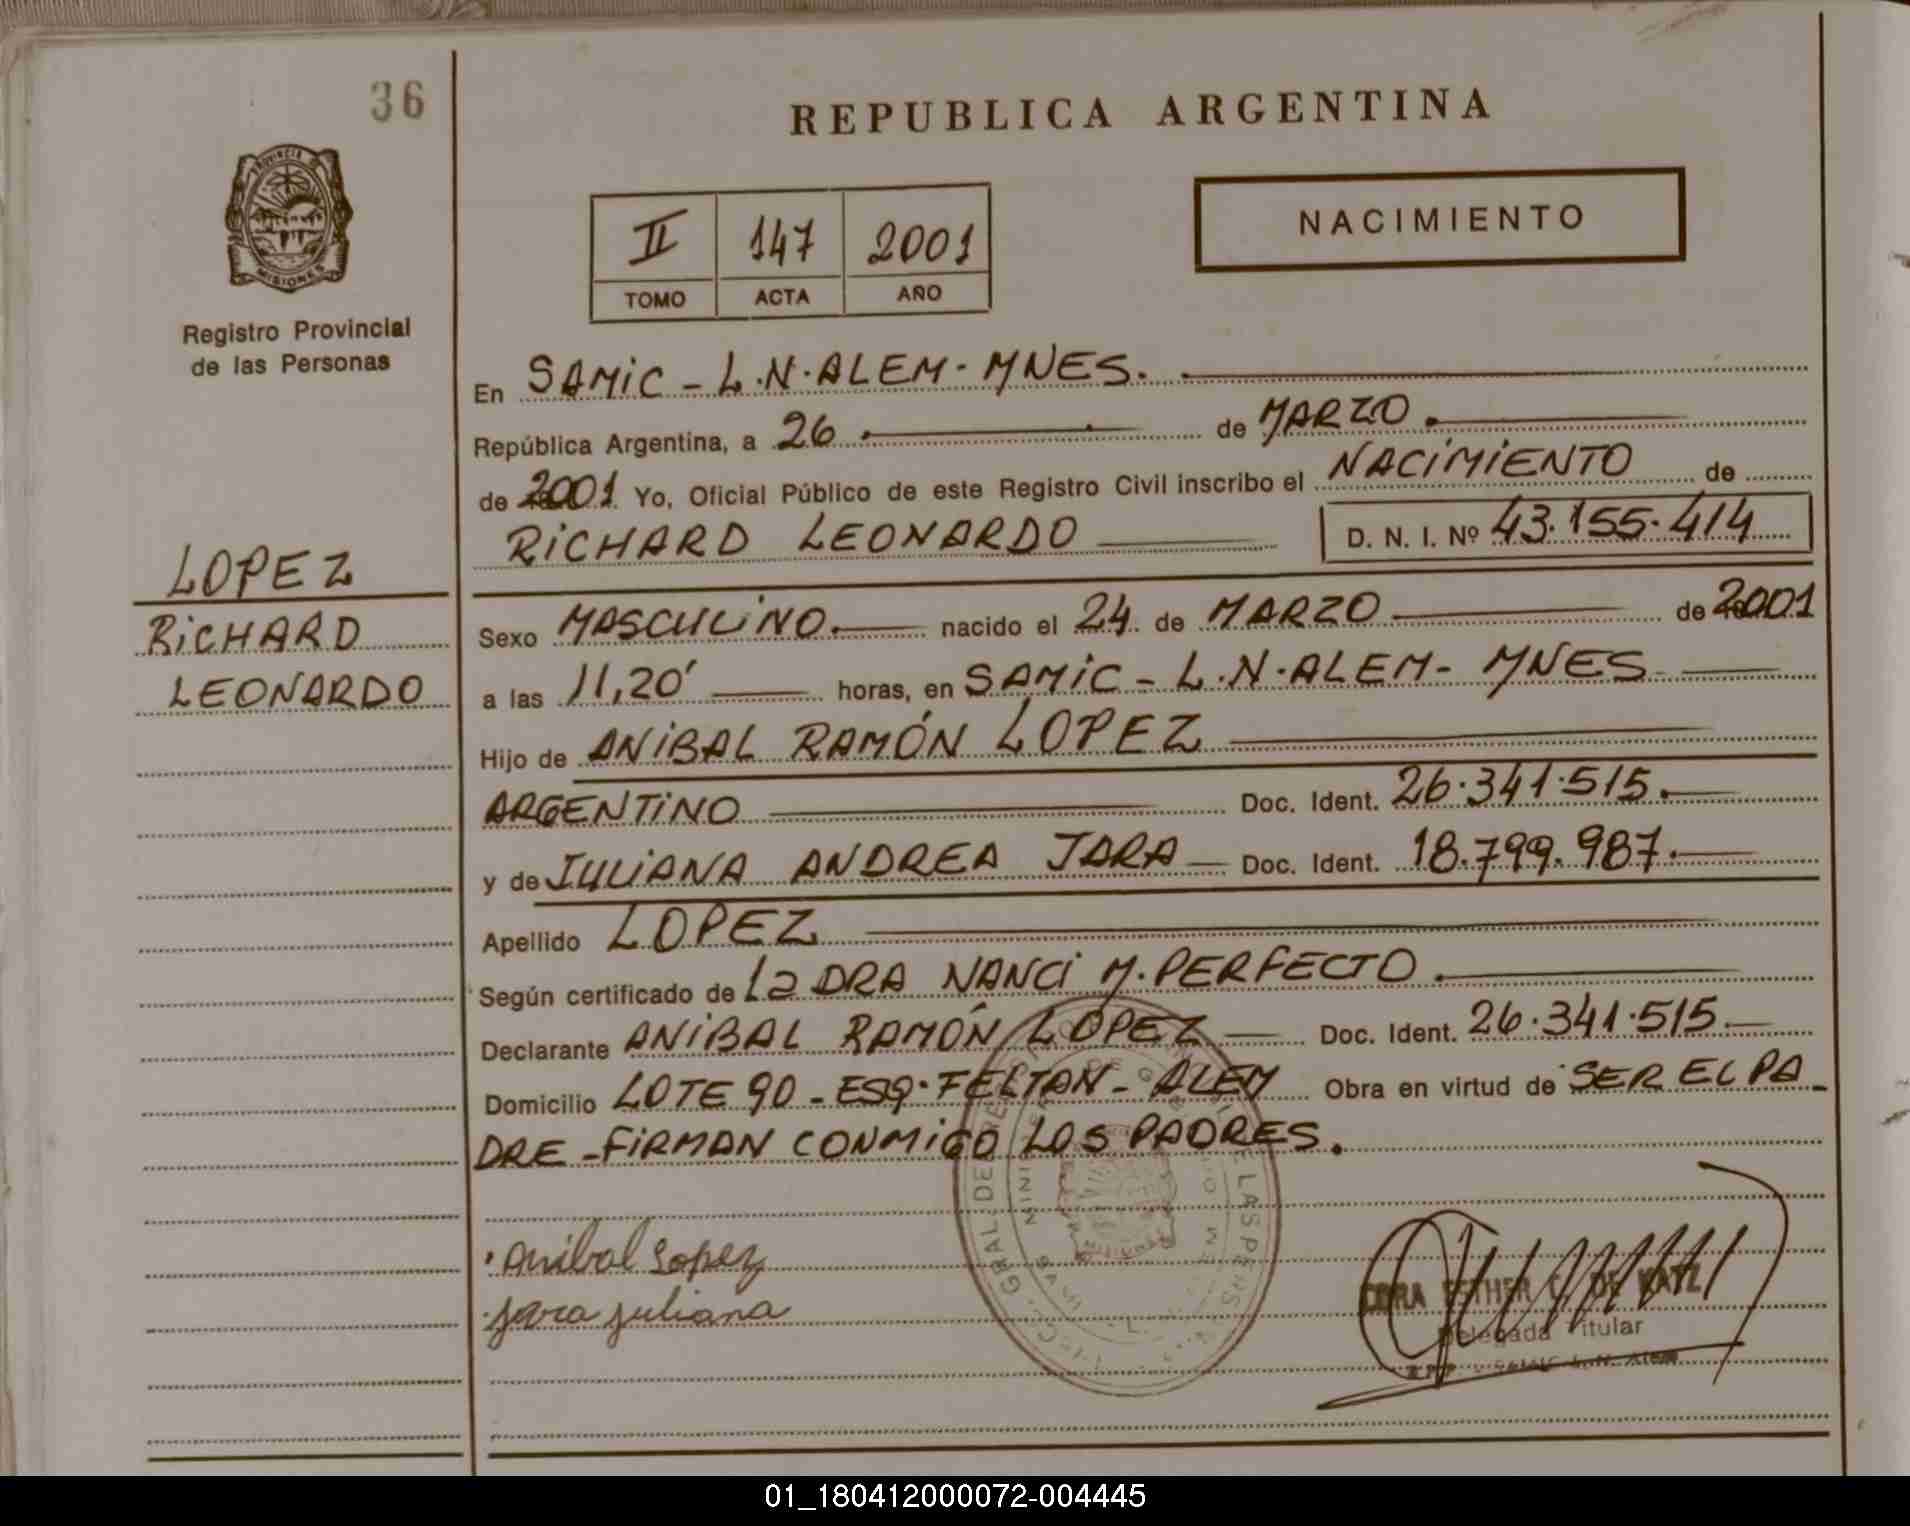 36
REPUBLICA ARGENTINA
PROVINCIA DE
MISIONES
Registro Provincial
de las Personas
II 147 2001
TOMO ACTA AÑO
NACIMIENTO
En SAMIC - L.N. ALEM - MNES.
República Argentina, a 26 de MARZO
de 2001 Yo, Oficial Público de este Registro Civil inscribo el NACIMIENTO de
RICHARD LEONARDO D. N. I. Nº 43.155.414
LOPEZ
RICHARD
LEONARDO
Sexo MASCULINO. nacido el 24 de MARZO de 2001
a las 11,20' horas, en SAMIC - L.N. ALEM - MNES
Hijo de ANIBAL RAMÓN LOPEZ
ARGENTINO Doc. Ident. 26.341.515.
y de JULIANA ANDREA JARA Doc. Ident. 18.799.987.
Apellido LOPEZ
Según certificado de La DRA NANCI M. PERFECTO.
Declarante ANIBAL RAMÓN LOPEZ Doc. Ident. 26.341.515.
Domicilio LOTE 90 - ESQ. FELTAN - ALEM Obra en virtud de SER EL PA-
DRE - FIRMAN CONMIGO LOS PADRES.
Anibal Lopez
Jara Juliana
MISIONES
ESTHER C. DE KATZ
Delegada Titular
L. N. Alem
01_180412000072-004445